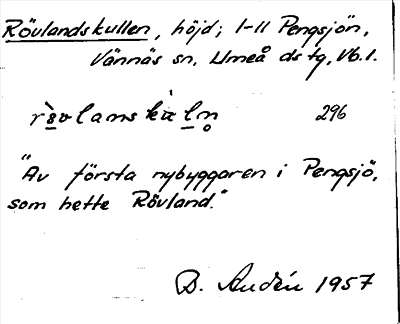 Rövlandskullen, höjd; 1-11 Pengsjön,
Vännäs sn, Umeå dstg, Vb. l.
296
"Av första nybyggaren i Pengsjö,
som hette Rövland."
B. 1957